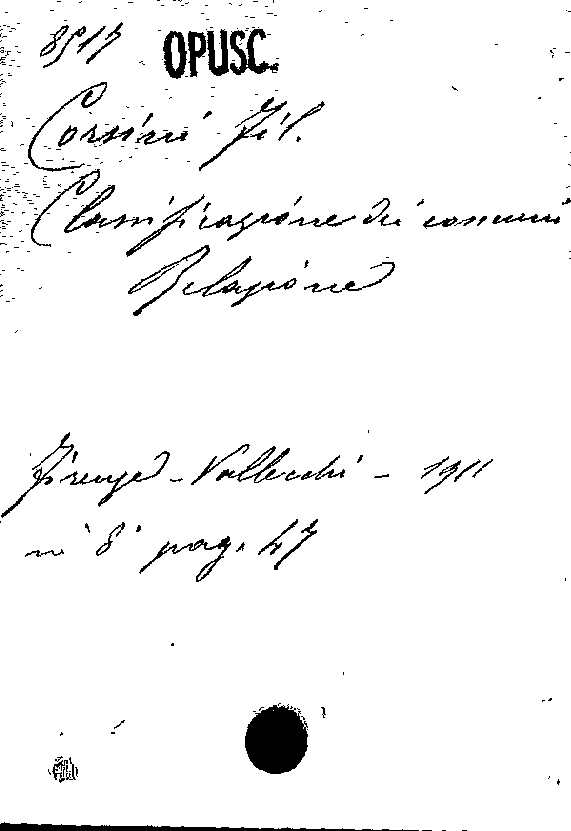 8517 OPUSC.
Corsini Fil.
Classificazione dei comuni
Relazione
Firenze - Vallecchi - 1911
in 8° pag. 47